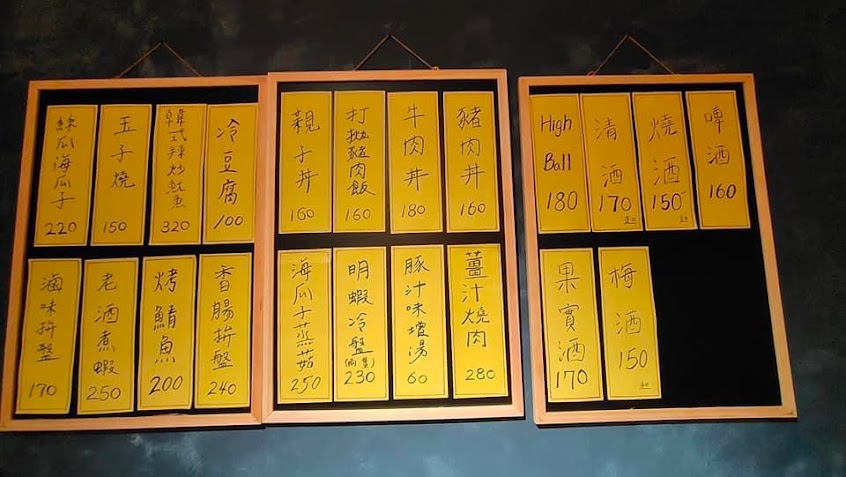 豬肉丼 160
牛肉丼 180
打拋豬肉飯 160
親子丼 160
薑汁燒肉 280
豚汁味增湯 60
明蝦冷盤 230
海瓜子蒸菇 250
冷豆腐 100
韓式辣炒魷魚 320
玉子燒 150
絲瓜海瓜子 220
香腸拚盤 240
烤鯖魚 200
老酒煮蝦 250
滷味拚盤 170
啤酒 160
燒酒 150
清酒 170
High Ball 180
梅酒 150
果實酒 170